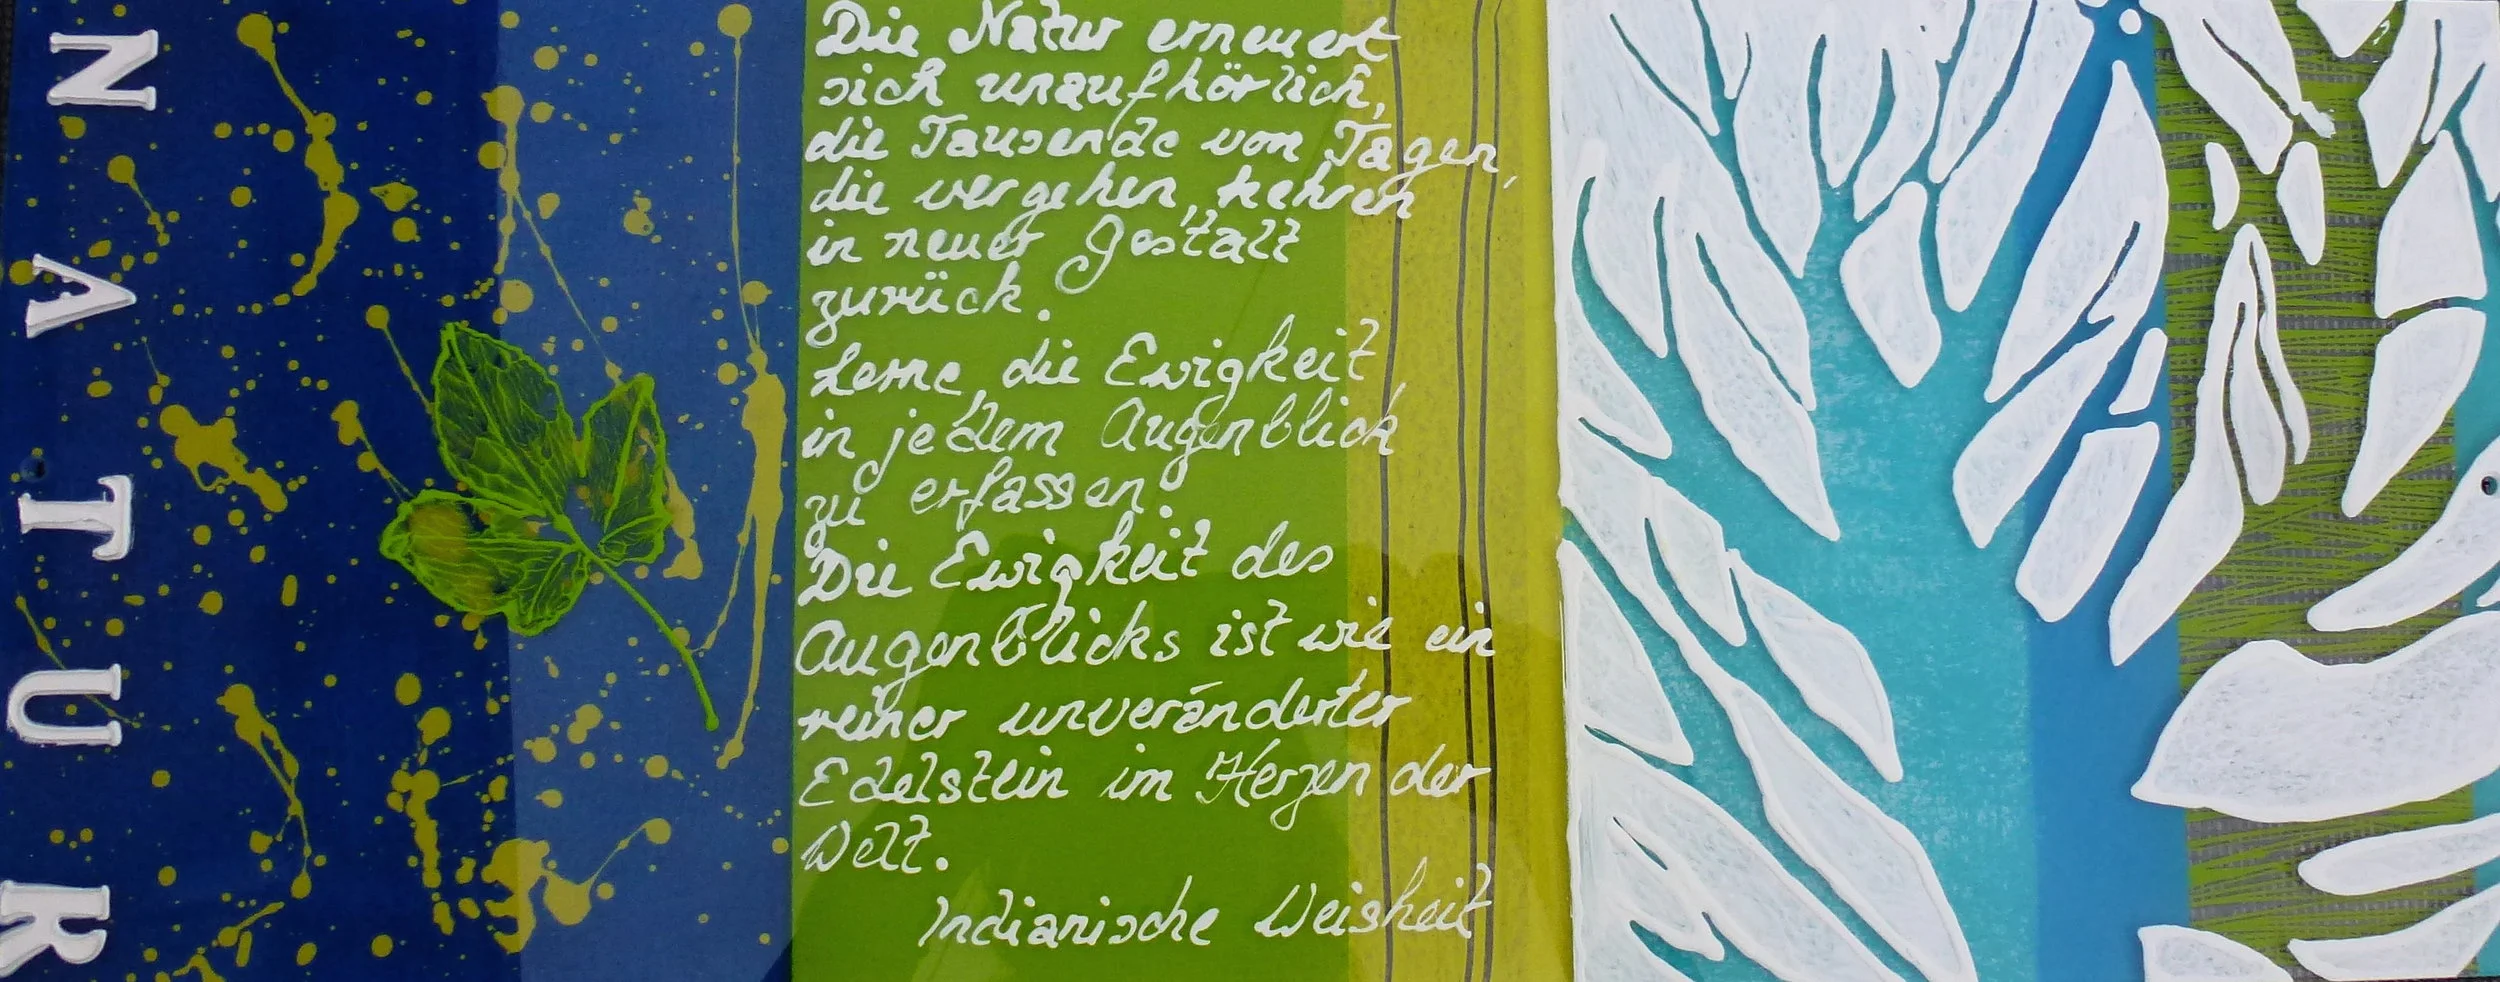 NATUR
Die Natur erneuert
sich unaufhörlich,
die Tausende von Tagen,
die vergehen, kehren
in neuer Gestalt
zurück.
Lerne, die Ewigkeit
in jedem Augenblick
zu erfassen.
Die Ewigkeit des
Augenblicks ist wie ein
reiner unveränderter
Edelstein im Herzen der
Welt.
Indianische Weisheit